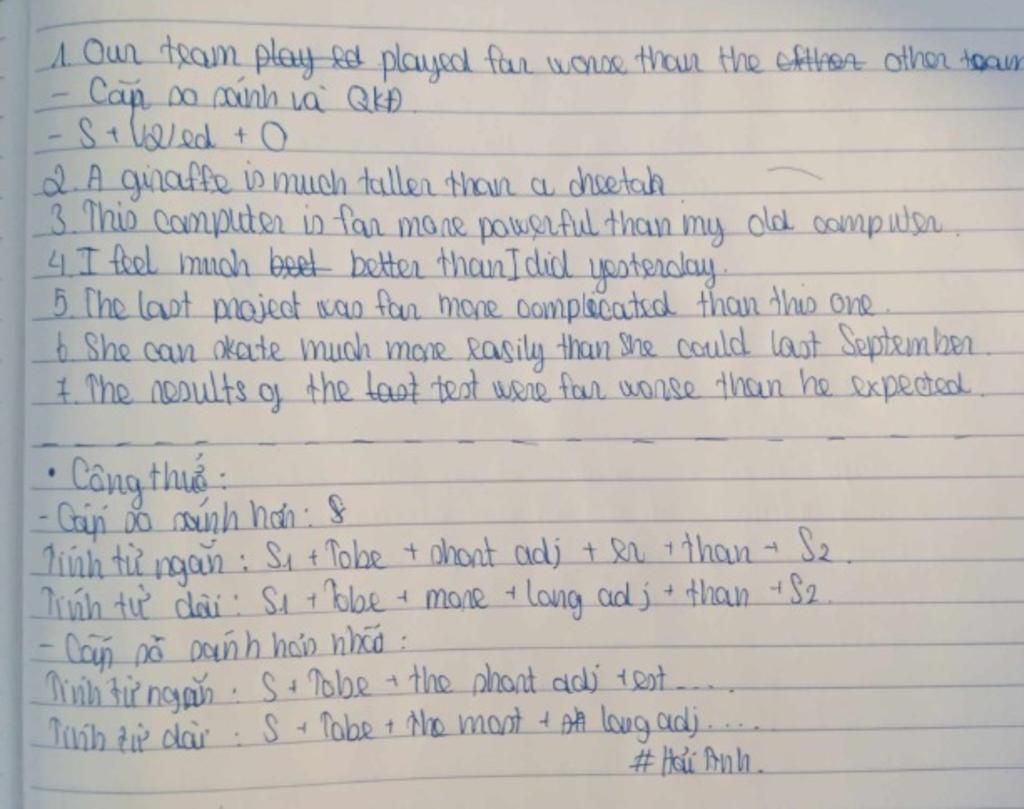 1. Our team played played far worse than the other other team
- Cấp so sánh và QKĐ.
- S + V2/ed + O
2. A giraffe is much taller than a cheetah
3. This computer is far more powerful than my old computer.
4. I feel much best better than I did yesterday.
5. The last project was far more complecated than this one.
6. She can skate much more easily than she could last September.
7. The results of the last test were far worse than he expected.
• Công thức:
- Cấp so sánh hơn: S
Tính từ ngắn: S1 + Tobe + short adj + er + than + S2.
Tính từ dài: S1 + Tobe + more + long adj + than + S2.
- Cấp so sánh hơn nhất:
Tính từ ngắn: S + Tobe + the short adj + est ....
Tính từ dài: S + Tobe + the most + long adj ....
# Hải Anh.